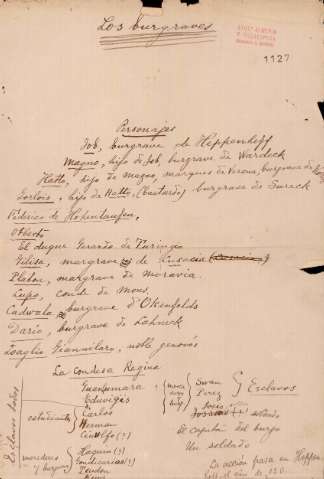 Los burgraves
1127
Personajes
Job, burgrave de Heppenheff
Magno, hijo de Job, burgrave de Wardeck
Hatto, hijo de Magno, marqués de Verona, burgrave de
Gorlois, hijo de Hatto, (bastardo) burgrave de Sareck
Federico de Hohenstaufen,
Otberto
El duque Gerardo de Turingia
Gilisa, margrave de Lusacia
Platon, margrave de Moravia.
Lupo, conde de Mons.
Cadwala, burgrave d'Okenfels
Dario, burgrave de Lahneck
Zoaglio Giannilaro, noble genovés
La condesa Regina
Guanhumara
Eduvigis
Carlos
Herman
Cinolfo (?)
Haquin (?)
Gondicarius (?)
Teudon
estudiantes
mercaderes
y burgueses
Esclavos todos
Swan
Perez
Esclavos
Josio
soldado
El capitan del burgo
Un soldado
La acción pasa en Heppen